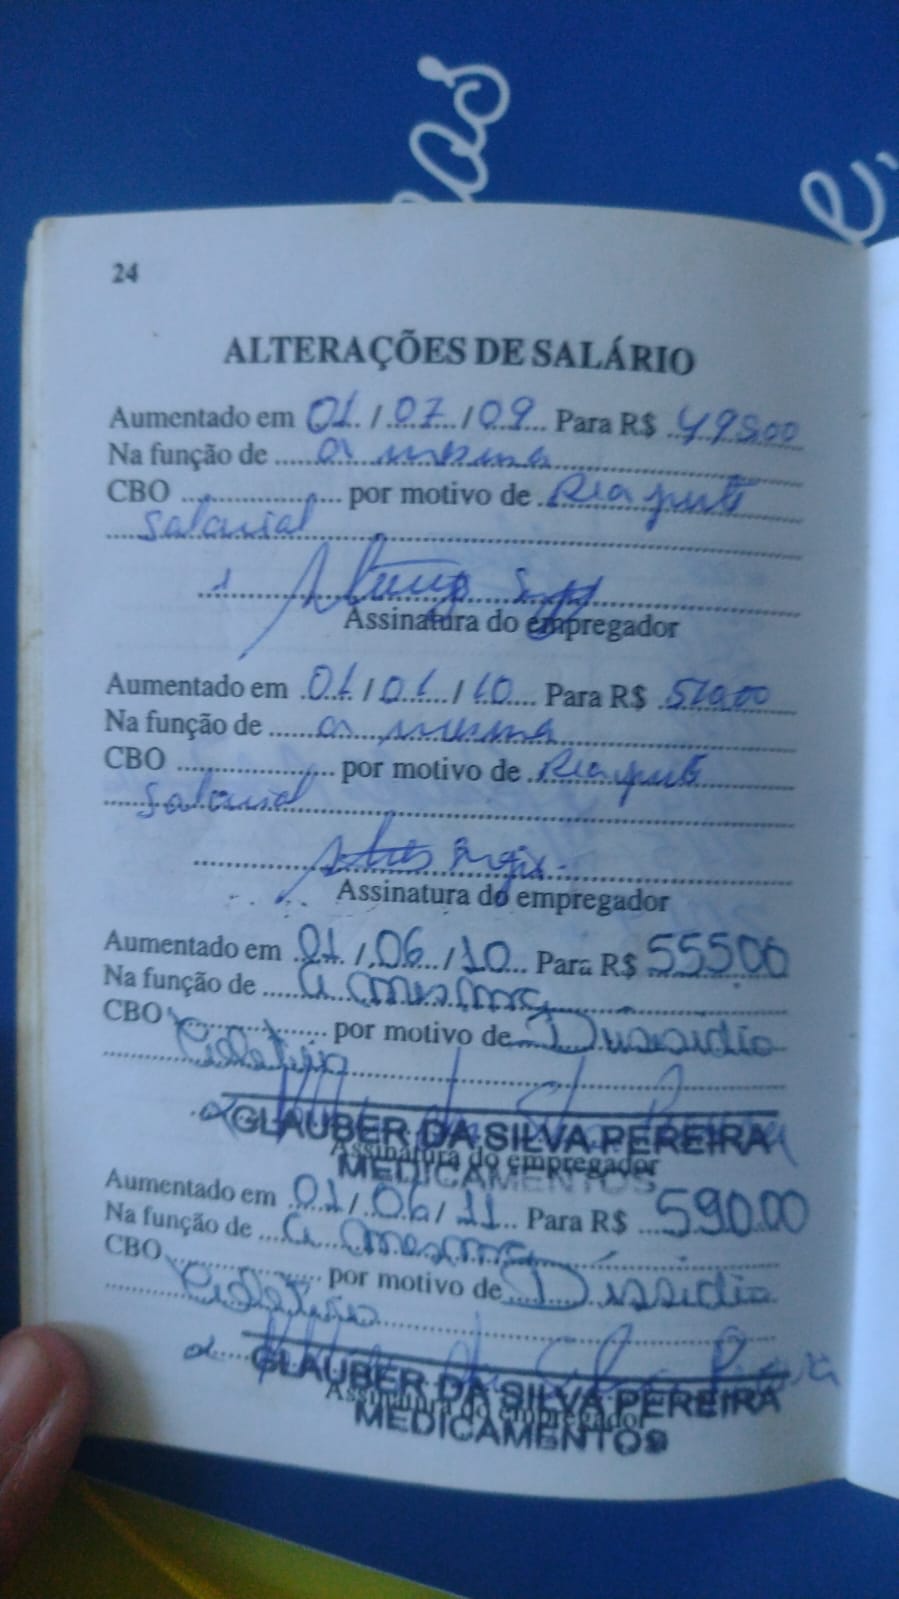 24
ALTERAÇÕES DE SALÁRIO
Aumentado em 01 / 07 / 09 Para R$ 498,00
Na função de a mesma
CBO por motivo de Reajuste
Salarial
Assinatura do empregador
Aumentado em 01 / 01 / 10 Para R$ 510,00
Na função de a mesma
CBO por motivo de Reajuste
Salarial
Assinatura do empregador
Aumentado em 01 / 06 / 10 Para R$ 555,00
Na função de a mesma
CBO por motivo de
GLAUBER DA SILVA PEREIRA
Assinatura do empregador
MEDICAMENTOS
Aumentado em 01 / 06 / 11 Para R$ 590,00
Na função de a mesma
CBO por motivo de Dissidio
GLAUBER DA SILVA PEREIRA
Assinatura do empregador
MEDICAMENTOS